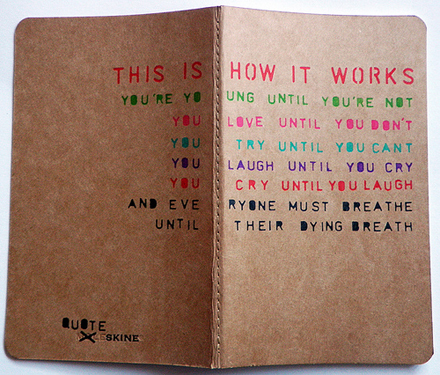 THIS IS HOW IT WORKS
YOU'RE YOUNG UNTIL YOU'RE NOT
YOU LOVE UNTIL YOU DON'T
YOU TRY UNTIL YOU CANT
YOU LAUGH UNTIL YOU CRY
YOU CRY UNTIL YOU LAUGH
AND EVERYONE MUST BREATHE
UNTIL THEIR DYING BREATH
QUOTE
LESKINE